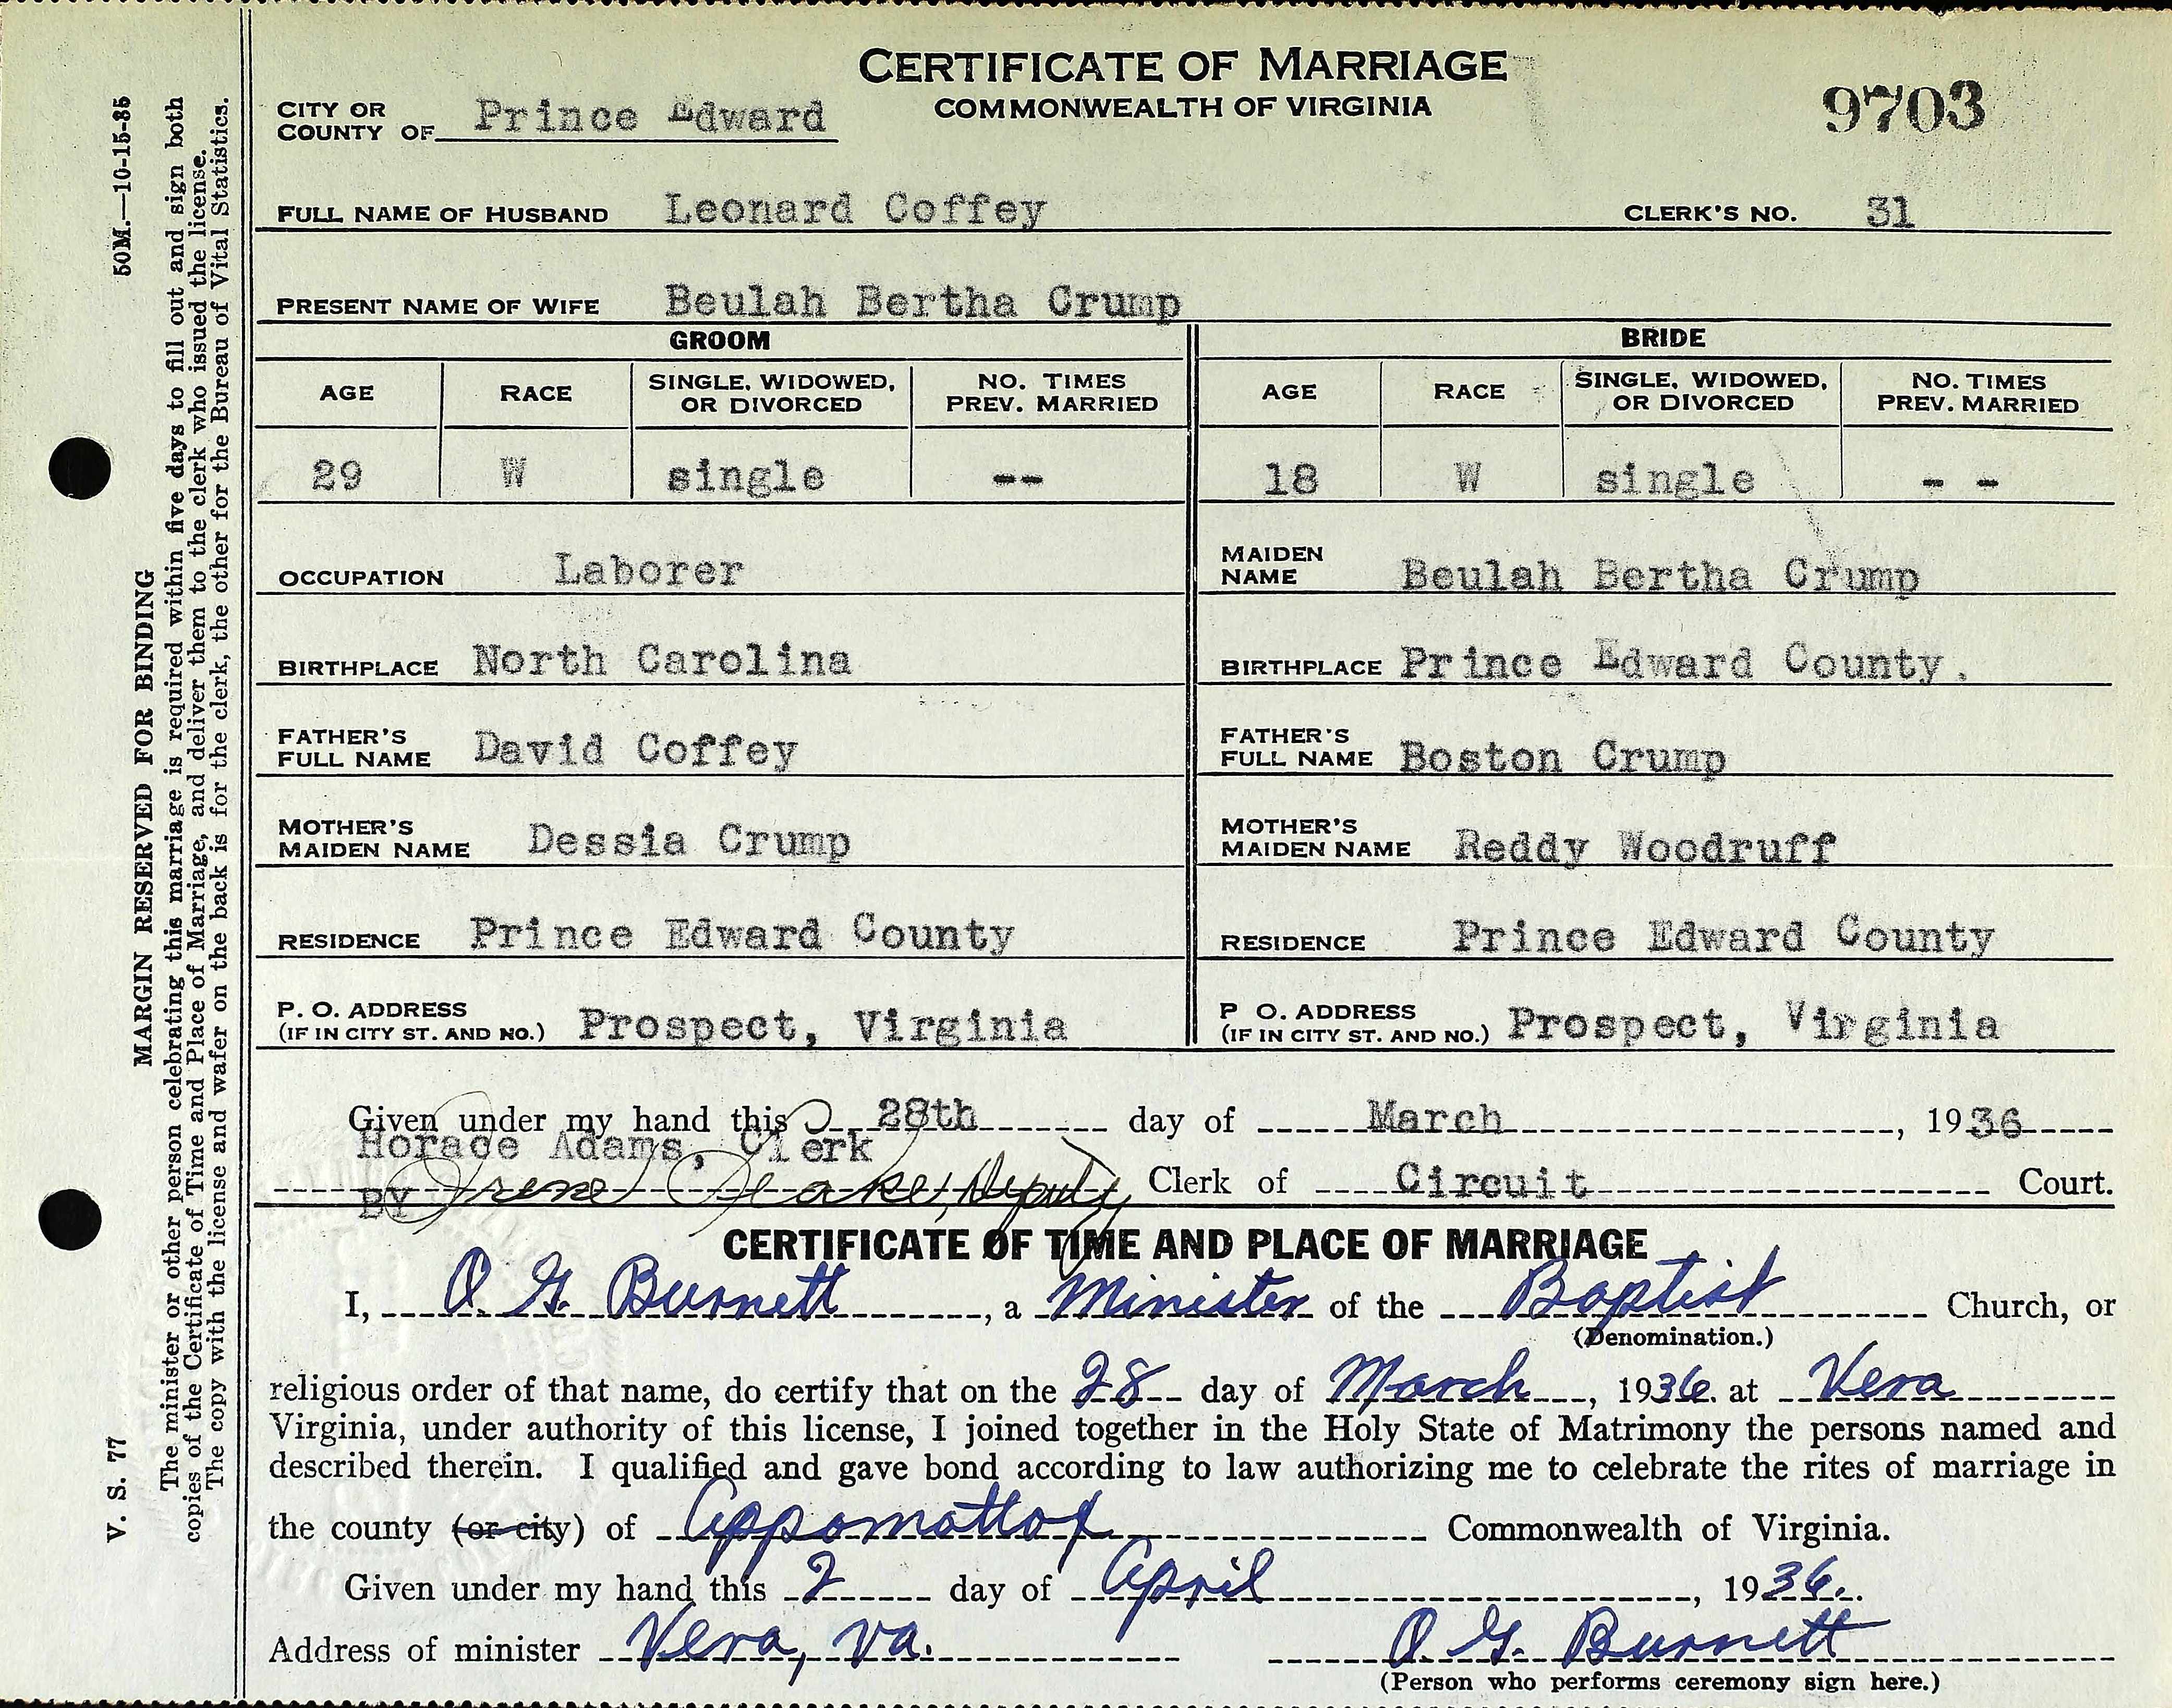 CERTIFICATE OF MARRIAGE
COMMONWEALTH OF VIRGINIA
9703
CITY OR COUNTY OF Prince Edward
FULL NAME OF HUSBAND Leonard Coffey CLERK'S NO. 31
PRESENT NAME OF WIFE Beulah Bertha Crump
GROOM BRIDE
AGE RACE SINGLE, WIDOWED, OR DIVORCED NO. TIMES PREV. MARRIED AGE RACE SINGLE, WIDOWED, OR DIVORCED NO. TIMES PREV. MARRIED
29 W single -- 18 W single - -
OCCUPATION Laborer MAIDEN NAME Beulah Bertha Crump
BIRTHPLACE North Carolina BIRTHPLACE Prince Edward County.
FATHER'S FULL NAME David Coffey FATHER'S FULL NAME Boston Crump
MOTHER'S MAIDEN NAME Dessia Crump MOTHER'S MAIDEN NAME Reddy Woodruff
RESIDENCE Prince Edward County RESIDENCE Prince Edward County
P. O. ADDRESS (IF IN CITY ST. AND NO.) Prospect, Virginia P O. ADDRESS (IF IN CITY ST. AND NO.) Prospect, Virginia
Given under my hand this 28th day of March, 1936
Horace Adams, Clerk
BY Irene , Deputy Clerk of Circuit Court.
CERTIFICATE OF TIME AND PLACE OF MARRIAGE
I, O G. Burnett, a Minister of the Baptist Church, or
(Denomination.)
religious order of that name, do certify that on the 28 day of March, 1936. at Vera
Virginia, under authority of this license, I joined together in the Holy State of Matrimony the persons named and
described therein. I qualified and gave bond according to law authorizing me to celebrate the rites of marriage in
the county (or city) of Appomattox Commonwealth of Virginia.
Given under my hand this 2 day of April, 1936.
Address of minister Vera, Va. O G. Burnett
(Person who performs ceremony sign here.)
50M.—10-15-35
MARGIN RESERVED FOR BINDING
V. S. 77
The minister or other person celebrating this marriage is required within five days to fill out and sign both
copies of the Certificate of Time and Place of Marriage, and deliver them to the clerk who issued the license.
The copy with the license and wafer on the back is for the clerk, the other for the Bureau of Vital Statistics.